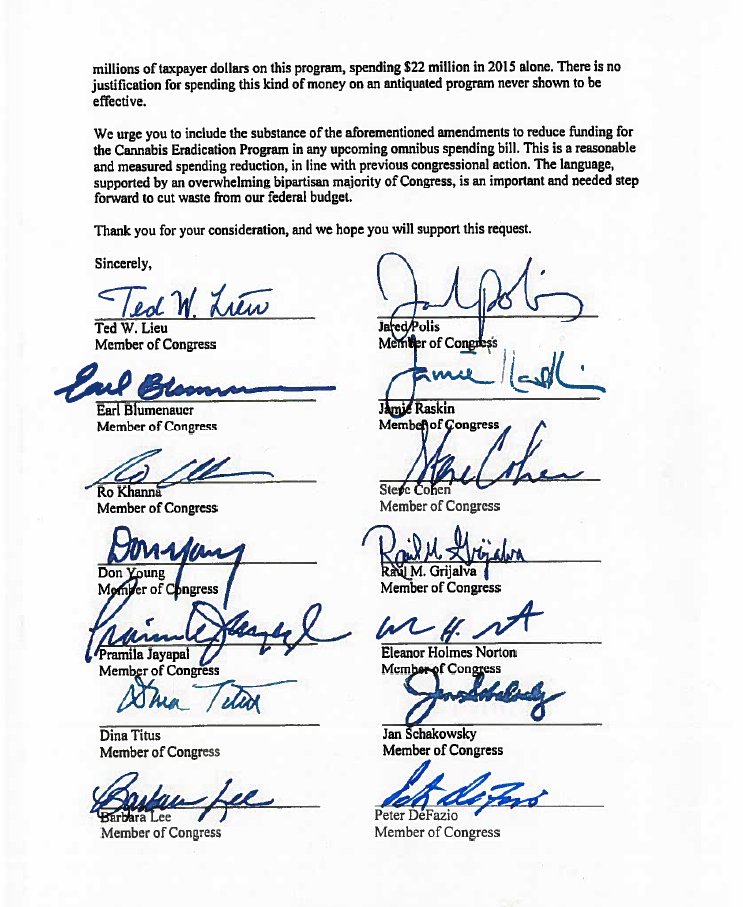 millions of taxpayer dollars on this program, spending $22 million in 2015 alone. There is no
justification for spending this kind of money on an antiquated program never shown to be
effective.
We urge you to include the substance of the aforementioned amendments to reduce funding for
the Cannabis Eradication Program in any upcoming omnibus spending bill. This is a reasonable
and measured spending reduction, in line with previous congressional action. The language,
supported by an overwhelming bipartisan majority of Congress, is an important and needed step
forward to cut waste from our federal budget.
Thank you for your consideration, and we hope you will support this request.
Sincerely,
Ted W. Lieu
Jared Polis
Ted W. Lieu
Jared Polis
Member of Congress
Member of Congress
Earl Blumenauer
Jamie Raskin
Earl Blumenauer
Jamie Raskin
Member of Congress
Member of Congress
Ro Khanna
Steve Cohen
Ro Khanna
Steve Cohen
Member of Congress
Member of Congress
Don Young
Raúl M. Grijalva
Don Young
Raúl M. Grijalva
Member of Congress
Member of Congress
Pramila Jayapal
Pramila Jayapal
Eleanor Holmes Norton
Member of Congress
Member of Congress
Dina Titus
Jan Schakowsky
Dina Titus
Jan Schakowsky
Member of Congress
Member of Congress
Barbara Lee
Peter DeFazio
Barbara Lee
Peter DeFazio
Member of Congress
Member of Congress